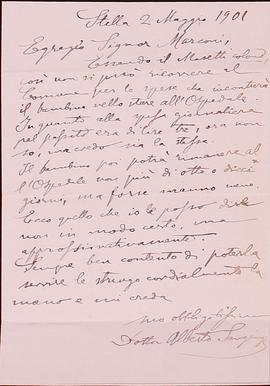 Stella 2 Maggio 1901
Egregio Signor Marconi,
Essendo il Masetti colono,
così non si può ricorrere il
Comune per le spese che incontrerà
il bambino nello stare all'Ospedale
In quanto alla spesa giornaliera
pel passato era di lire tre, ora non
so, ma credo sia la stessa.
Il bambino poi potrà rimanere al
l'Ospedale non più di otto o dieci
giorni, ma forse saranno meno.
Ecco quello che io le posso dire
non in modo certo, ma
approssimativamente.
Sempre ben contento di poterla
servire le stringo cordialmente la
mano e mi creda
suo obbligatissimo
Dottor Alberto